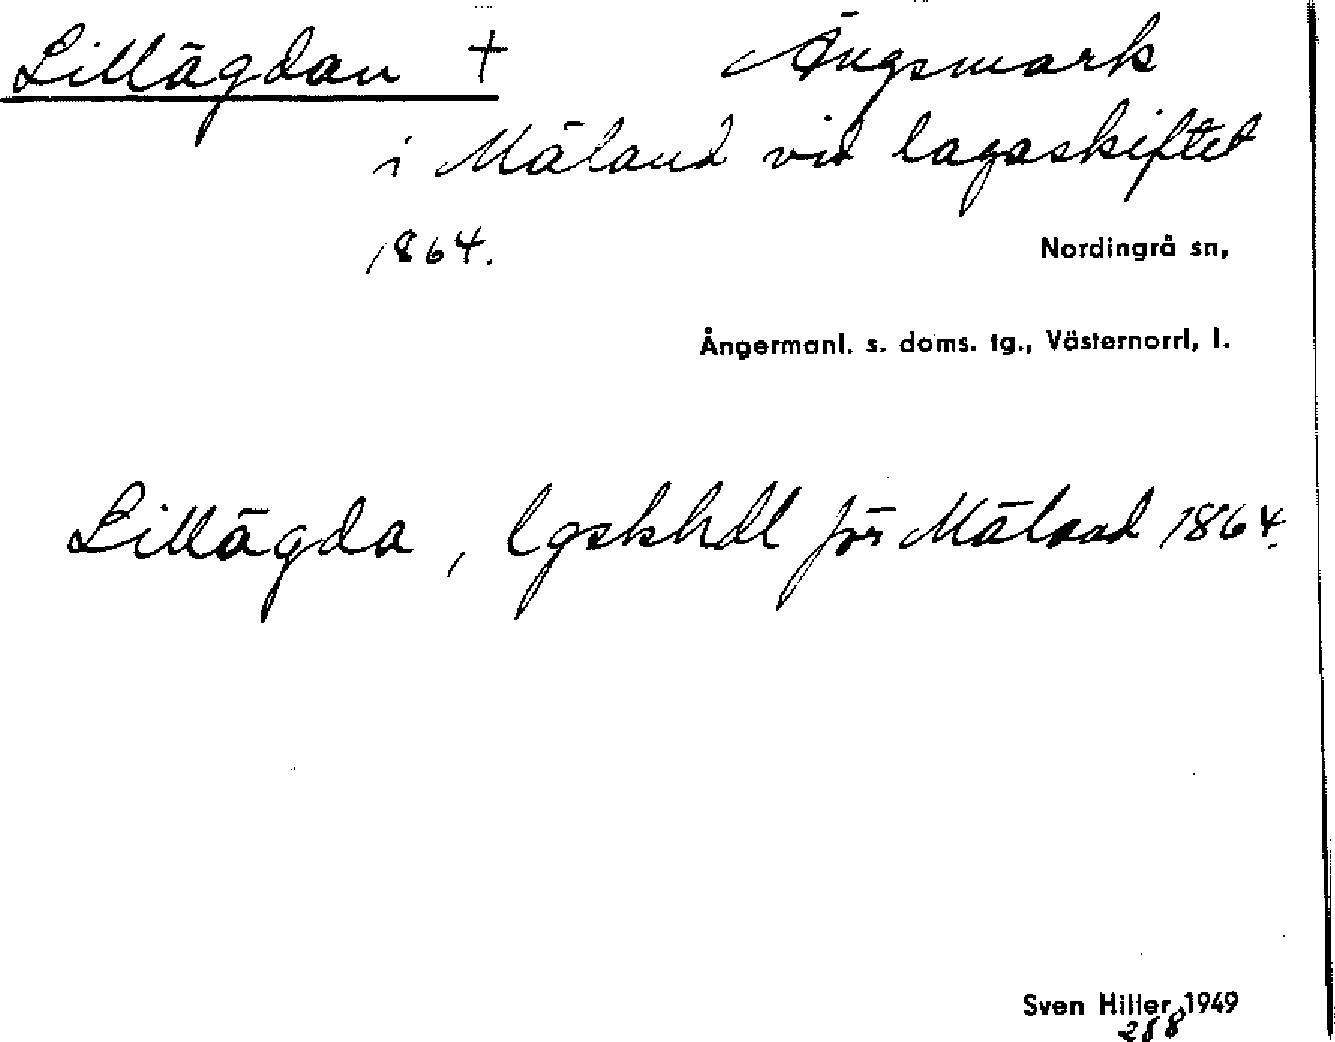 Lillägdan + Ängsmark
i Mäland vid lagaskiftet
1864.
Nordingrå sn,
Ångermanl. s. doms. tg., Västernorrl, l.
Lillägda, lgskhdl för Mäland 1864.
Sven Hiller 1949
288